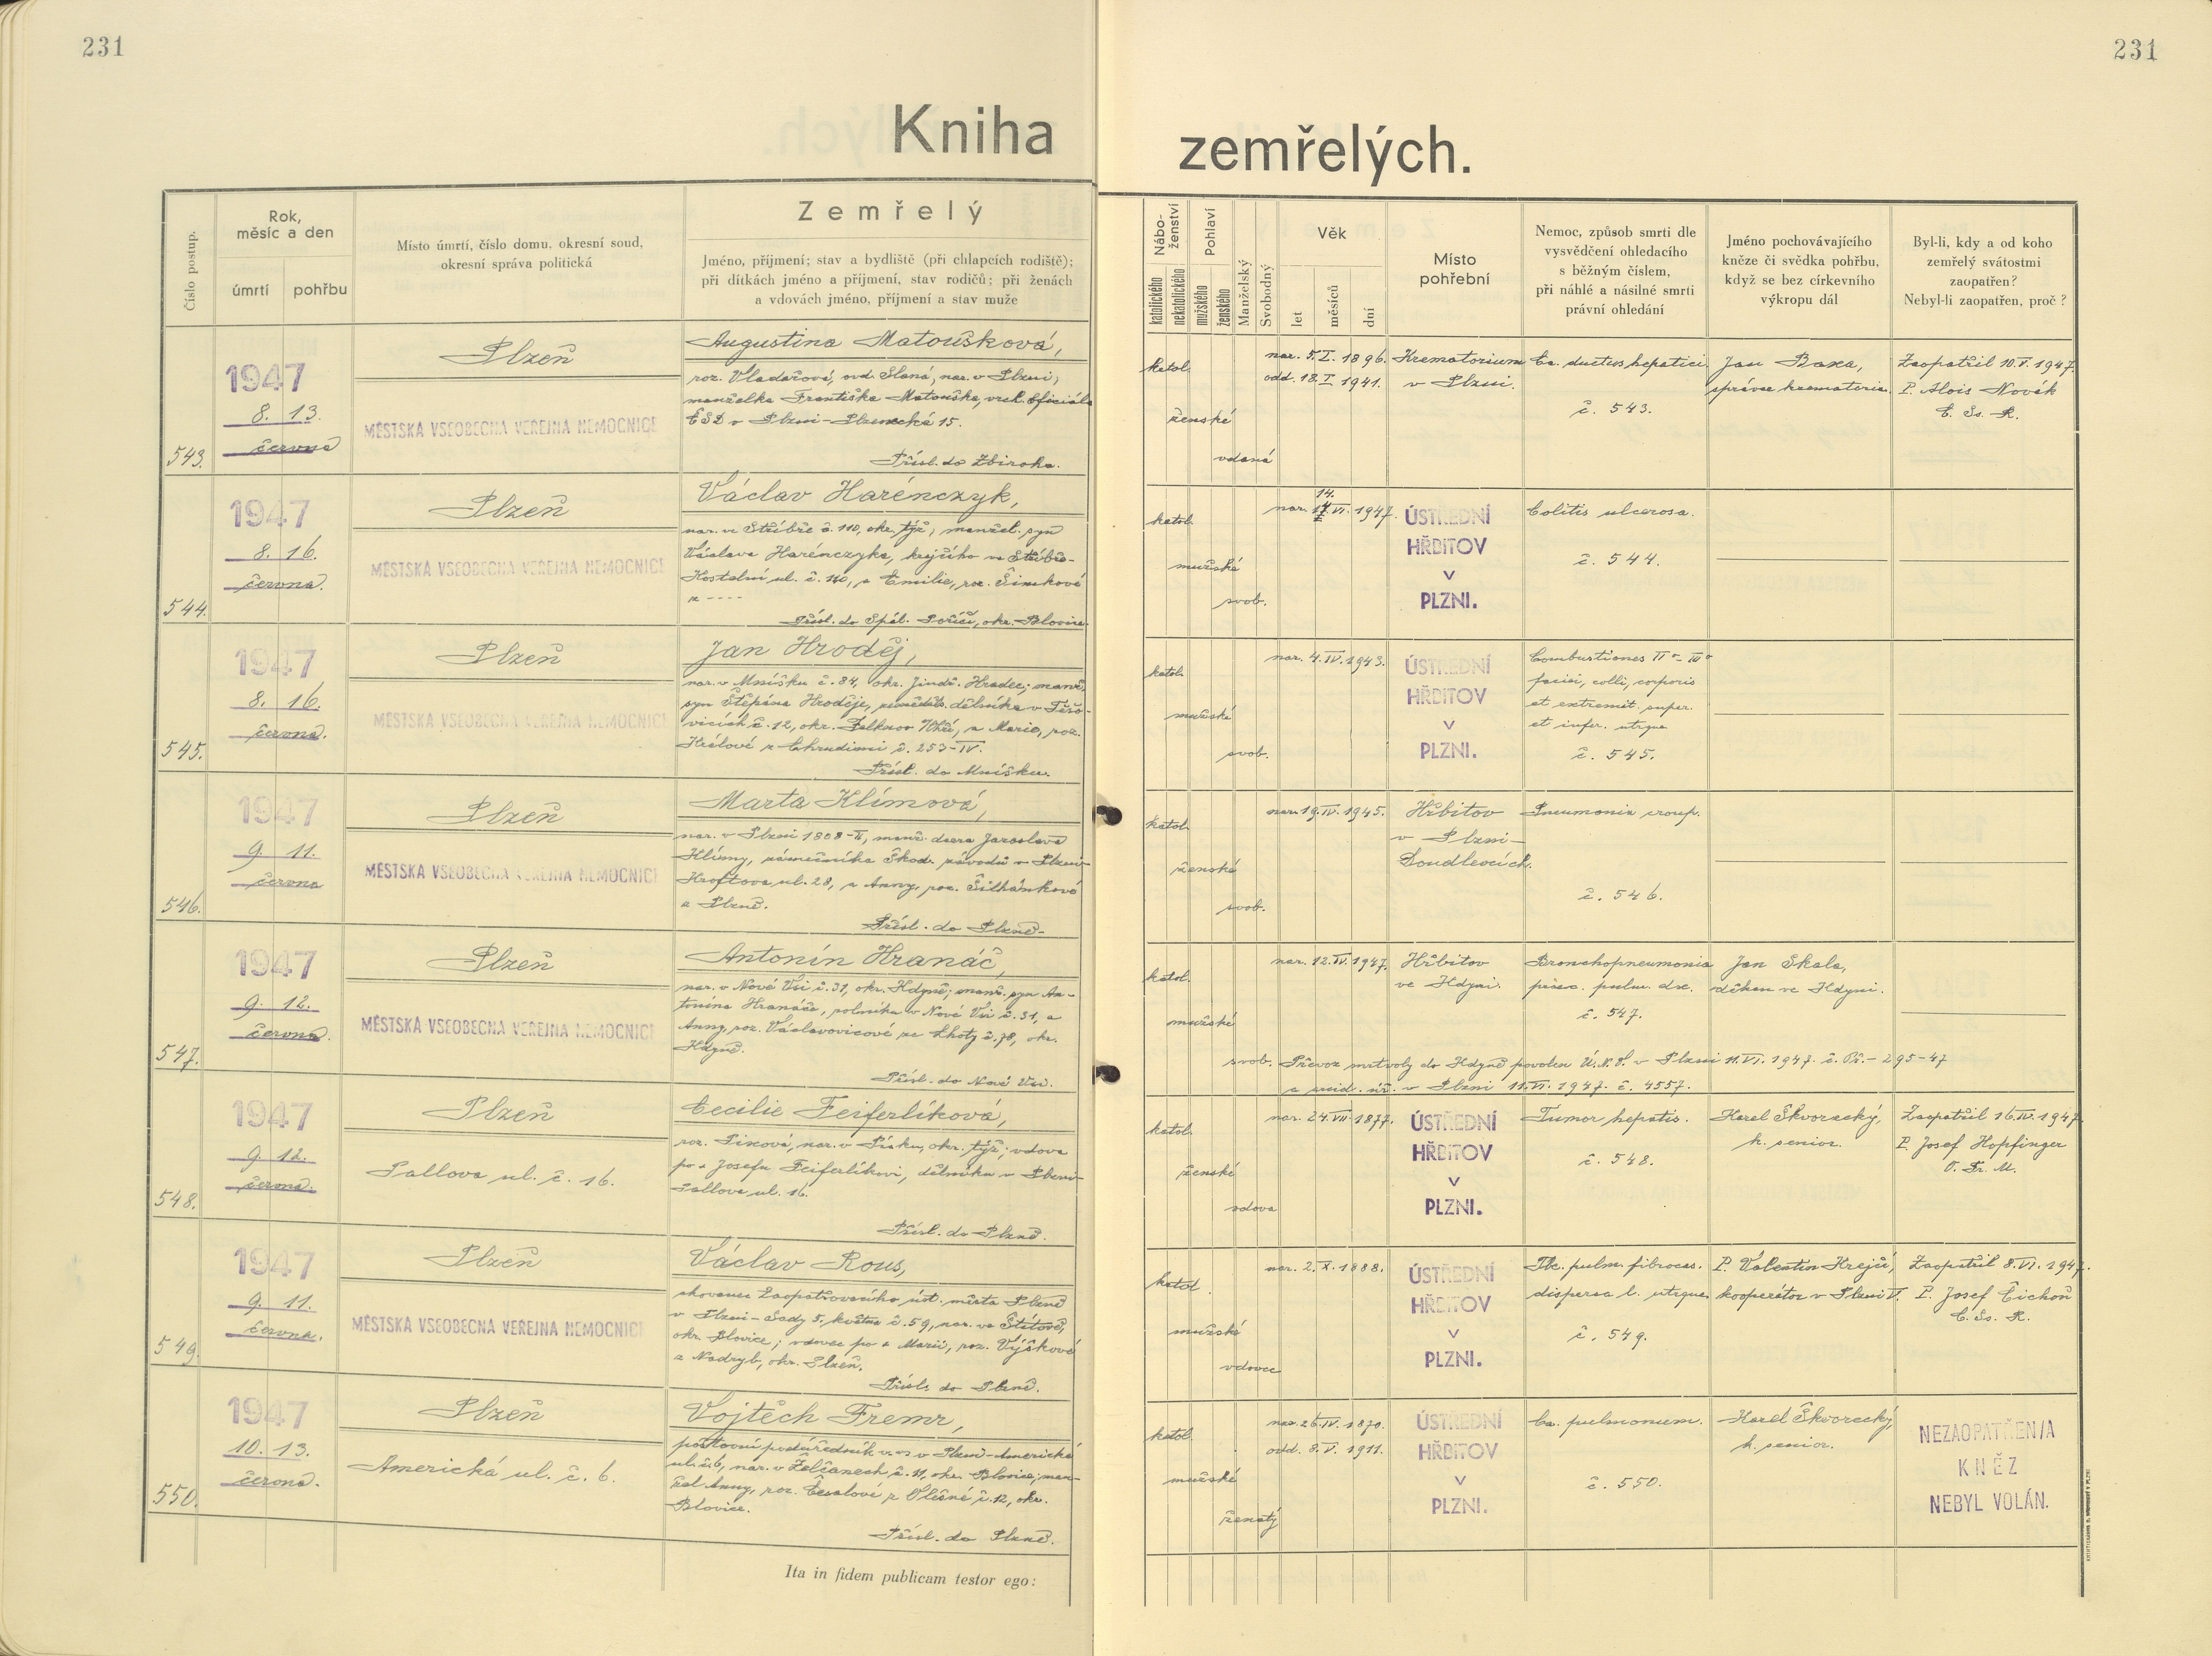 231
231
Kniha zemřelých.
Číslo postup.
Rok,
měsíc a den
úmrtí
pohřbu
Místo úmrtí, číslo domu, okresní soud,
okresní správa politická
Zemřelý
Jméno, příjmení; stav a bydliště (při chlapcích rodiště);
při dítkách jméno a příjmení, stav rodičů; při ženách
a vdovách jméno, příjmení a stav muže
Nábo-
ženství
katolického
nekatolického
Pohlaví
mužského
ženského
Manželský
Svobodný
Věk
let
měsíců
dní
Místo
pohřební
Nemoc, způsob smrti dle
vysvědčení ohledacího
s běžným číslem,
při náhlé a násilné smrti
právní ohledání
Jméno pochovávajícího
kněze či svědka pohřbu,
když se bez církevního
výkropu dál
Byl-li, kdy a od koho
zemřelý svátostmi
zaopatřen?
Nebyl-li zaopatřen, proč?
543.
1947
8. 13.
června
Plzeň
MĚSTSKÁ VŠEOBECNÁ VEŘEJNÁ NEMOCNICE
Augustina Matoušková,
roz. Vladařová, ovd. Slaná, nar. v Plzni,
manželka Františka Matouška, vrch. oficiála
ČSD v Plzni - Plzenecká 15.
Přísl. do Zbiroha.
katol.
ženské
vdaná
nar. 5.I. 1896.
odd. 18.I. 1941.
Krematorium
v Plzni.
Ca. ductus hepatici
č. 543.
Jan Baxa,
správce krematoria.
Zaopatřil 10.V.1947.
P. Alois Novák
C. Ss. R.
544.
1947
8. 16.
června.
Plzeň
MĚSTSKÁ VŠEOBECNÁ VEŘEJNÁ NEMOCNICE
Václav Harénczyk,
nar. ve Stříbře č. 110, okr. týž, manžel. syn
Václava Harénczyka, krejčího ve Stříbře-
Kostelní ul. č. 110, a Emilie, roz. Šimkové
z ----
Přísl. do Spál. Poříčí, okr. Blovice
katol.
mužské
svob.
14.
VI. 1947.
ÚSTŘEDNÍ
HŘBITOV
V
PLZNI.
Colitis ulcerosa.
č. 544.
545.
1947
8. 16.
června.
Plzeň
MĚSTSKÁ VŠEOBECNÁ VEŘEJNÁ NEMOCNICE
Jan Hroděj,
nar. v Mníšku č. 84, okr. Jindř. Hradec; manž.
syn Štěpána Hroděje, zeměděl. dělníka v Těšo-
vicích č. 12, okr. Falknov n/Ohří, a Marie, roz.
Králové z Chrudimi č. 253-IV.
Přísl. do Mníšku.
katol.
mužské
svob.
nar. 4.IV.1943.
ÚSTŘEDNÍ
HŘBITOV
V
PLZNI.
Combustiones II°- III°
faciei, colli, corporis
et extremit. super.
et infer. utrque
č. 545.
546.
1947
9. 11.
června
Plzeň
MĚSTSKÁ VŠEOBECNÁ VEŘEJNÁ NEMOCNICE
Marta Klímová,
nar. v Plzni 1808-II, manž. dcera Jaroslava
Klímy, zámečníka Škod. závodů v Plzni-
Kroftova ul. 28, a Anny, roz. Šilhánkové
z Plzně.
Přísl. do Plzně.
katol.
ženské
svob.
nar. 19.IV.1945.
Hřbitov
v Plzni-
Doudlevcích.
Pneumonia croup.
č. 546.
547.
1947
9. 12.
června.
Plzeň
MĚSTSKÁ VŠEOBECNÁ VEŘEJNÁ NEMOCNICE
Antonín Hranáč,
nar. v Nové Vsi č. 31, okr. Kdyně; manž. syn An-
tonína Hranáče, rolníka v Nové Vsi č. 31, a
Anny, roz. Václavovicové ze Lhoty č. 78, okr.
Kdyně.
Přísl. do Nové Vsi.
katol.
mužské
svob.
nar. 12.IV.1947.
Hřbitov
ve Kdyni.
Bronchopneumonia
prec. pulm. dx.
č. 547.
Jan Skala,
děkan ve Kdyni.
Převoz mrtvoly do Kdyně povolen Ú.N.V. v Plzni 11.VI. 1947. č. - 295-47
a úř. v Plzni 11.VI. 1947. č. 4557.
548.
1947
9. 12.
června.
Plzeň
Pallova ul. č. 16.
Cecilie Feiferlíková,
roz. Pixová, nar. v Písku, okr. týž; vdova
po + Josefu Feiferlíkovi, dělníku v Plzni-
Pallova ul. 16.
Přísl. do Plzně.
katol.
ženské
vdova
nar. 24.VII.1877.
ÚSTŘEDNÍ
HŘBITOV
V
PLZNI.
Tumor hepatis.
č. 548.
Karel Škvorecký,
k. senior.
Zaopatřil 16.IV.1947.
P. Josef Hopfinger
O. Fr. M.
549.
1947
9. 11.
června.
Plzeň
MĚSTSKÁ VŠEOBECNÁ VEŘEJNÁ NEMOCNICE
Václav Rous,
chovanec Zaopatřovacího úst. města Plzně
v Plzni - Sady 5. května č. 59, nar. ve Štítově,
okr. Blovice; vdovec po + Marii, roz. Výškové
z Nadryb, okr. Plzeň.
Přísl. do Plzně.
katol.
mužské
vdovec
nar. 2.X.1888.
ÚSTŘEDNÍ
HŘBITOV
V
PLZNI.
Tbc. pulm. fibrocas.
dispersa l. utrque
č. 549.
P. Valentin Krejčí,
kooperátor v Plzni V.
Zaopatřil 8.VI.1947.
P. Josef Cichoň
C. Ss. R.
550.
1947
10. 13.
června.
Plzeň
Americká ul. č. 6.
Vojtěch Fremr,
poštovní podúředník v. v. v Plzni-Americká
ul. č. 6, nar. v Želčanech č. 11, okr. Blovice; man-
žel Anny, roz. Česalové z Olešné č. 12, okr.
Blovice.
Přísl. do Plzně.
katol.
mužské
ženatý
nar. 26.IV.1870.
odd. 8.V. 1911.
ÚSTŘEDNÍ
HŘBITOV
V
PLZNI.
Ca. pulmonum.
č. 550.
Karel Škvorecký,
k. senior.
NEZAOPATŘEN/A
KNĚZ
NEBYL VOLÁN.
Ita in fidem publicam testor ego: